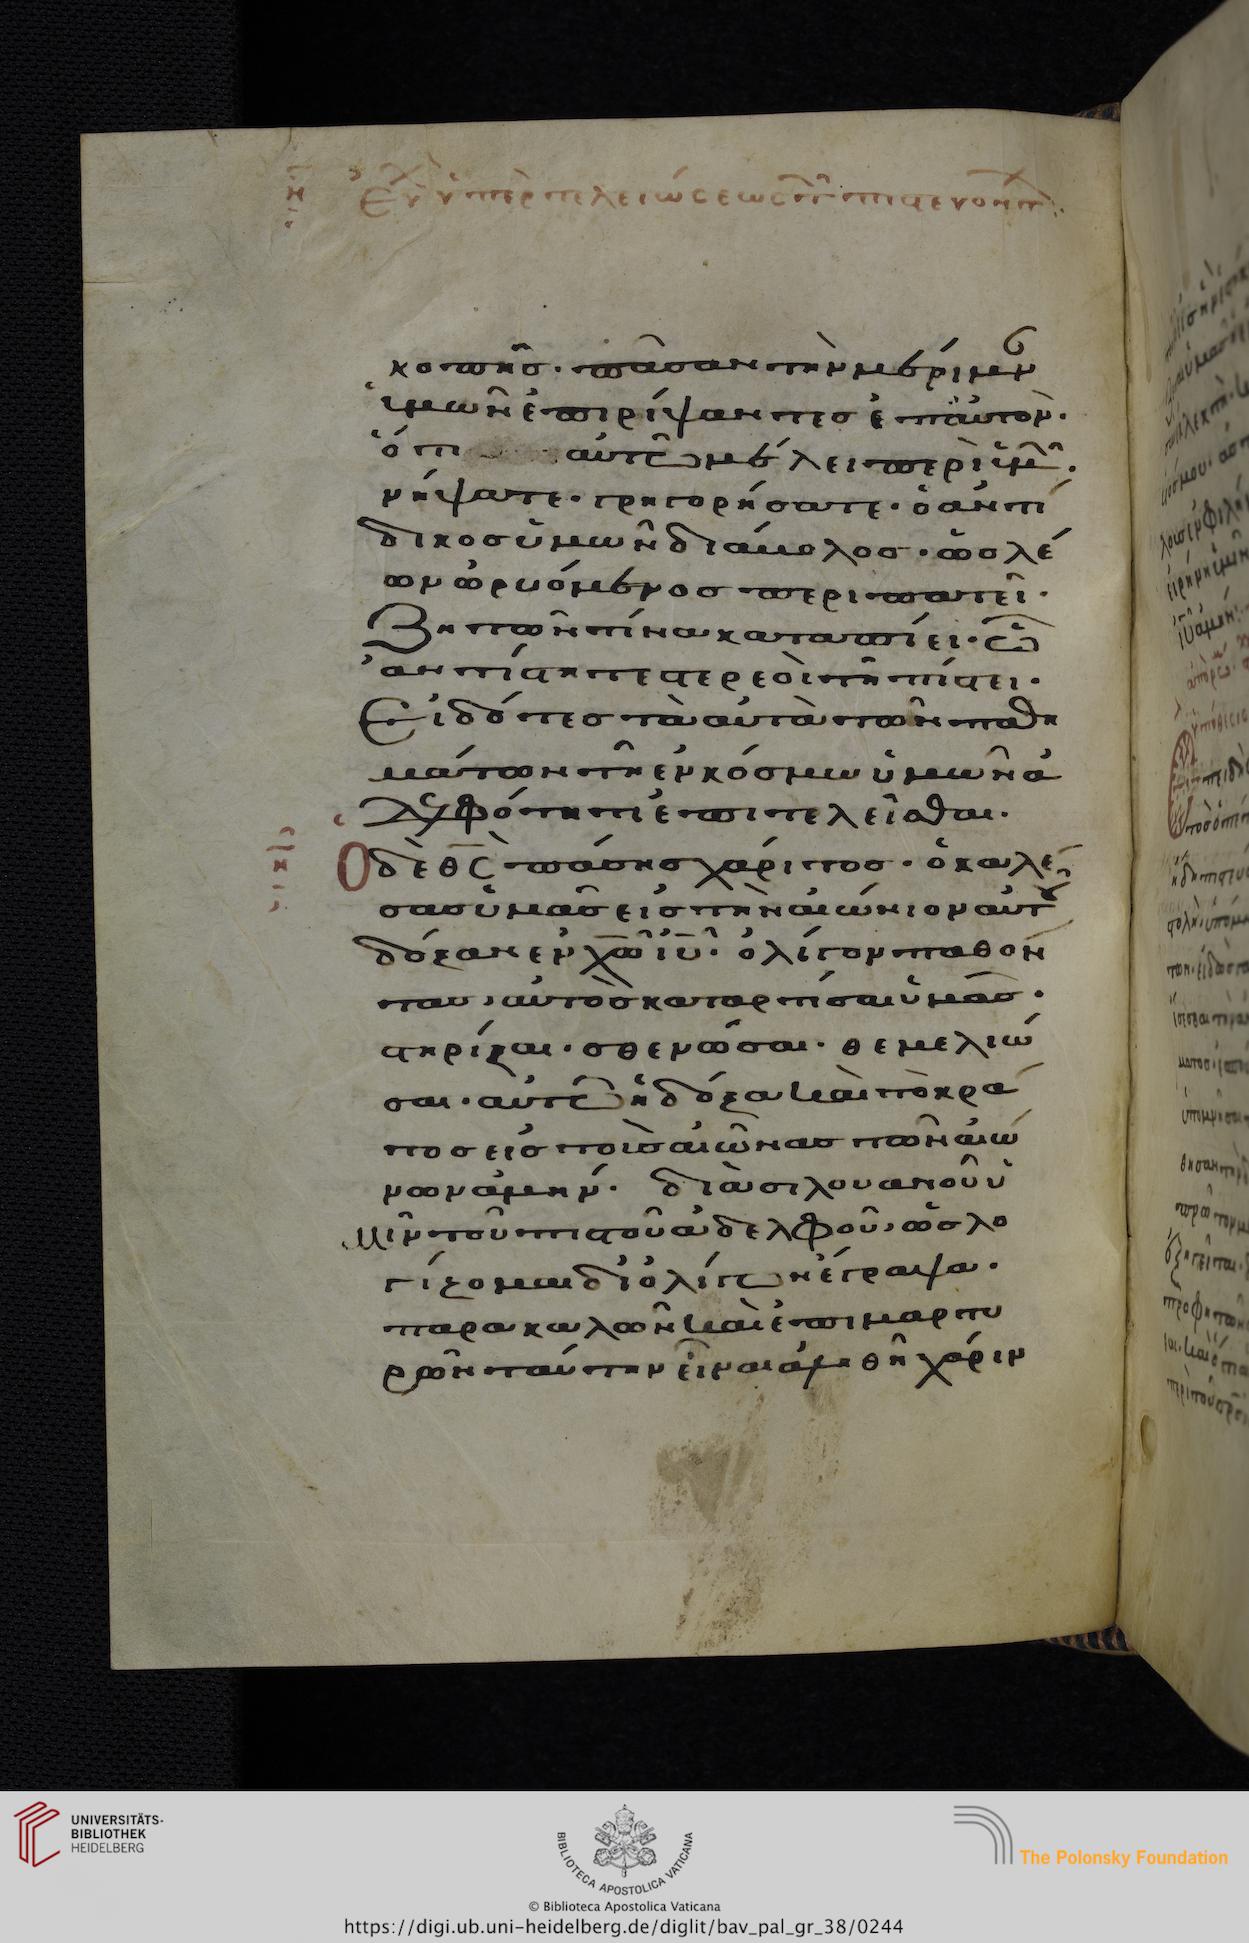 κοπῆς· πᾶσαν τὴν μέριμν
ὑμῶν ἐπιρίψαντες ἐπ αυτὸν·
ὅτι αὐτῶ μέλει περὶ ὑμῶ·
νήψατε· γρηγορήσατε· ὁ ἀντί
δικος ὑμῶν διάβολος· ὡς λέ
ων ὠρυόμενος περιπατεῖ·
Ζητῶν τίνα καταπίει· ᾧ
ἀντίστητε στερεοὶ τῆ πίστει·
Εἰδότες τὰ αὐτὰ τῶν παθη
μάτων τῆ ἐν κόσμω ὑμῶν ἀ
δελφότητι ἐπιτελεῖσθαι·
Ὁ δὲ θς πάσης χάριτος· ὁ καλέ
σας ὑμᾶς εἰς τὴν αἰώνιον αὐτοῦ
δόξαν ἐν χω ιυ· ὀλίγον παθόν
τας, αὐτὸς καταρτίσαι ὑμᾶς·
στηρίξαι· σθενῶσαι· θεμελιώ
σαι· αὐτῶ ἡ δόξα καὶ τὸ κρά
τος εἰς τοὺς αἰῶνας τῶν αἰώ
νων ἀμήν· διὰ σιλουανοῦ ὑ
μῖν τοῦ πιστοῦ ἀδελφοῦ, ὡς λο
γίζομαι δι ὀλίγων ἔγραψα·
παρακαλῶν καὶ ἐπιμαρτυ
ρῶν ταύτην εἶναι ἀληθῆ χάριν
UNIVERSITÄTS-
BIBLIOTHEK
HEIDELBERG
BIBLIOTECA APOSTOLICA VATICANA
© Biblioteca Apostolica Vaticana
The Polonsky Foundation
https://digi.ub.uni-heidelberg.de/diglit/bav_pal_gr_38/0244